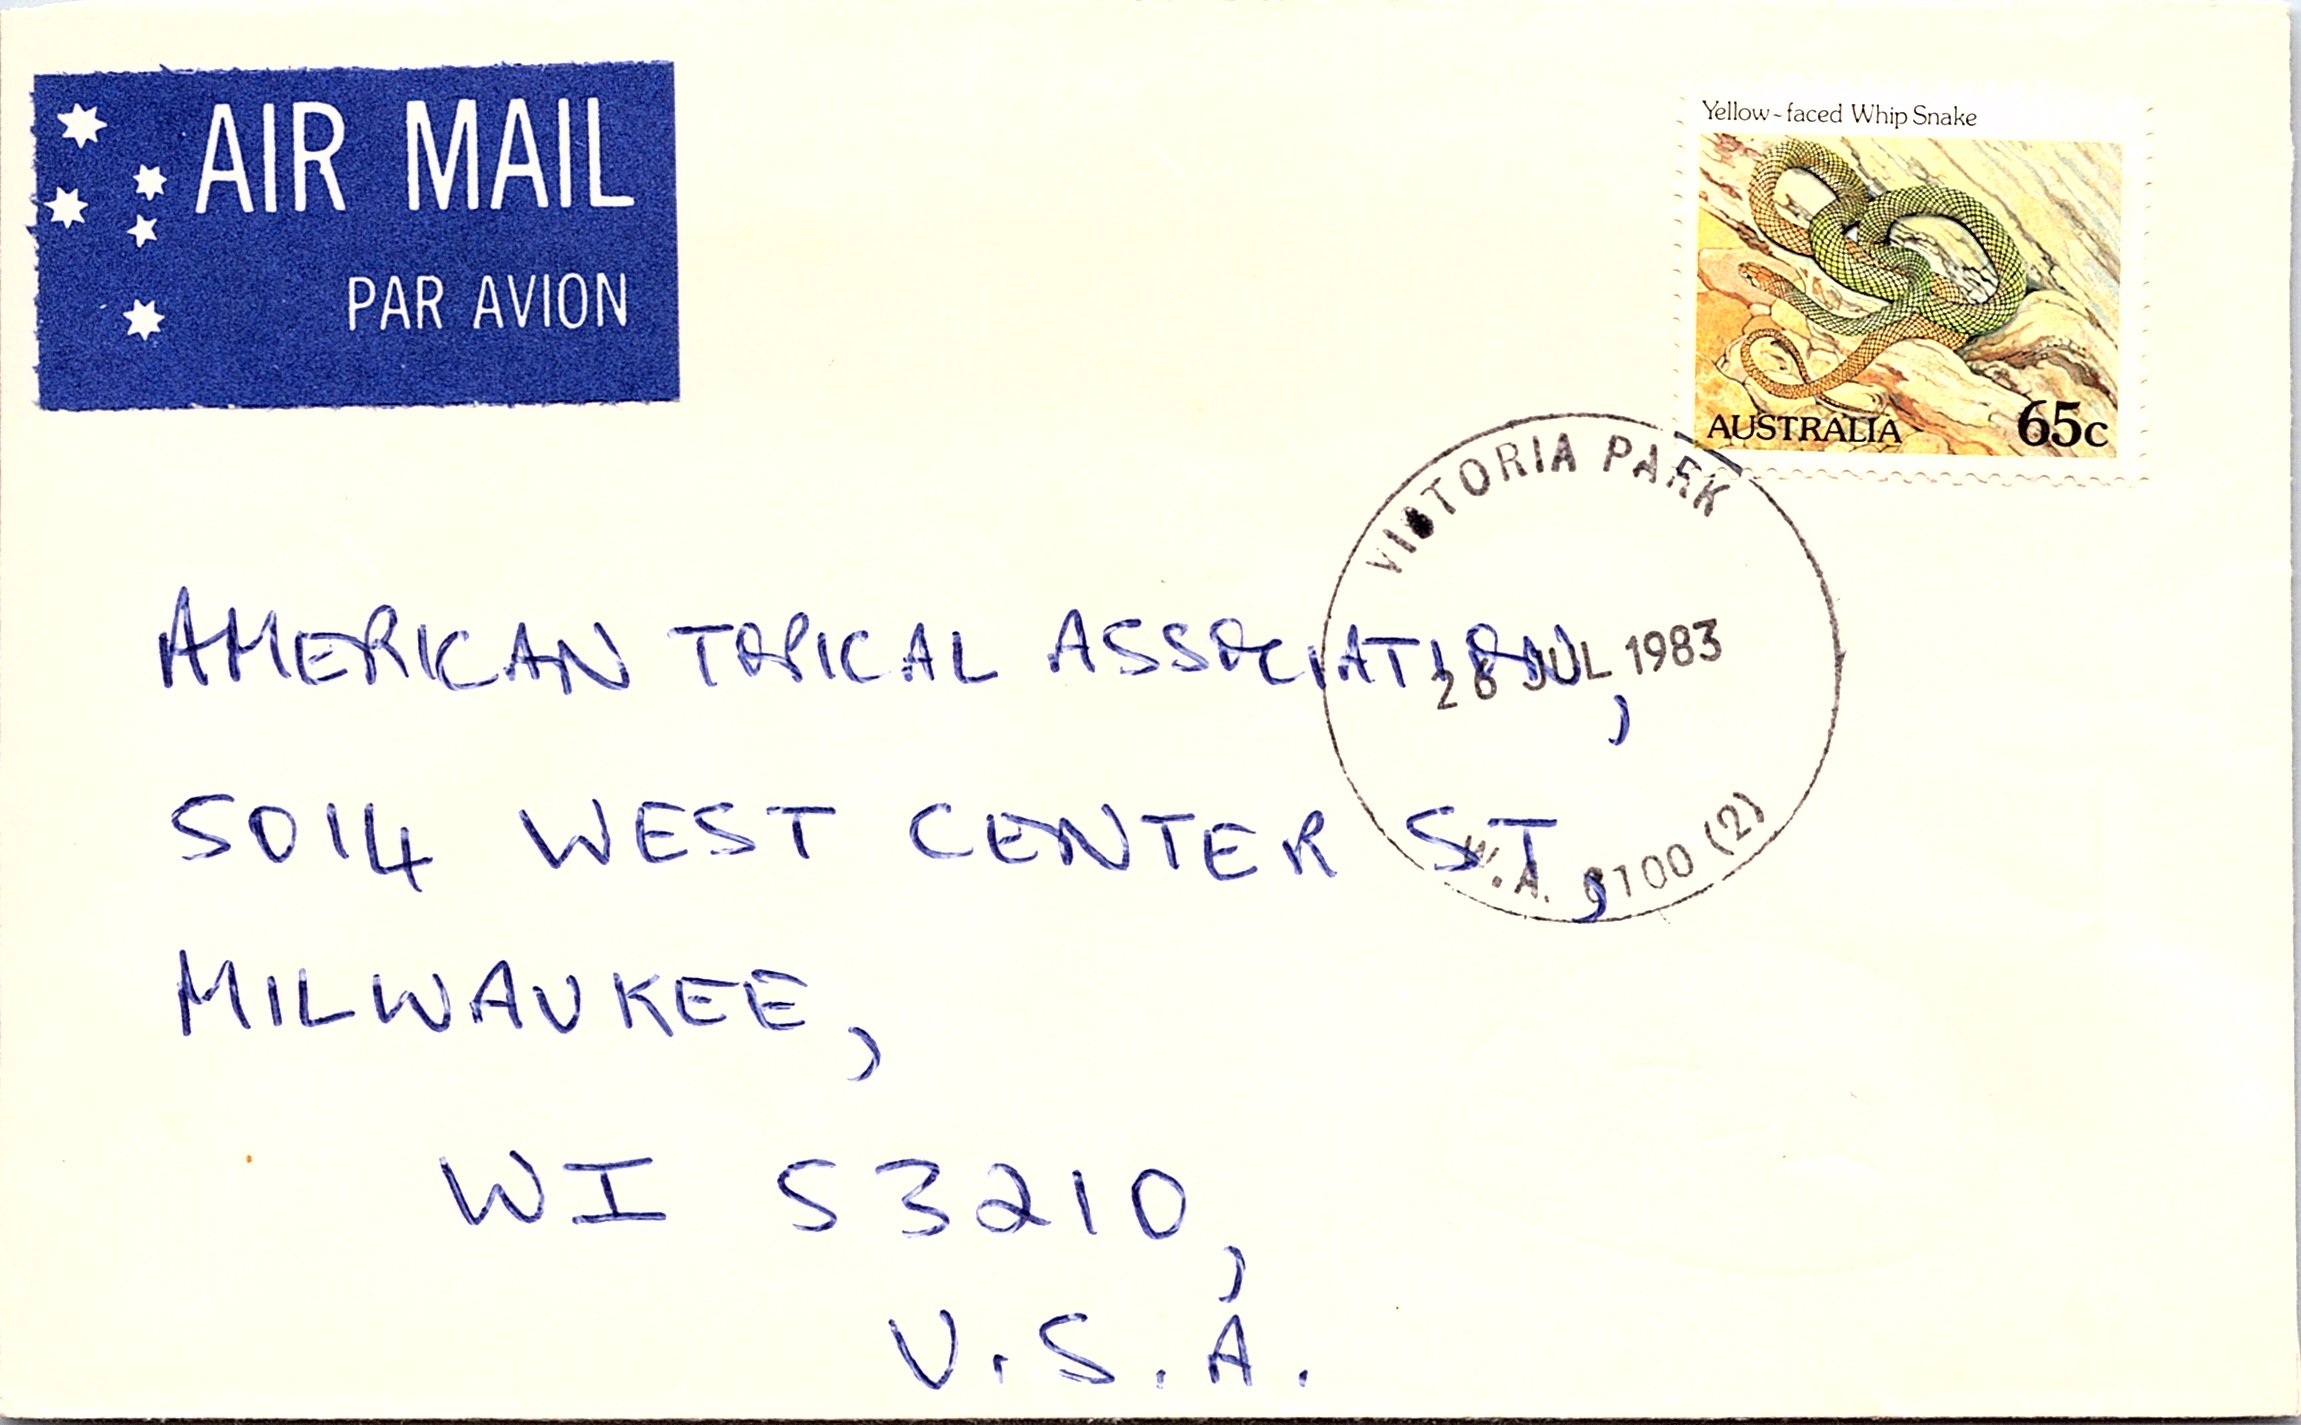 AIR MAIL
PAR AVION
Yellow-faced Whip Snake
AUSTRALIA 65c
VICTORIA PARK
28 JUL 1983
W.A. 6100 (2)
AMERICAN TOPICAL ASSOCIATION,
5014 WEST CENTER ST,
MILWAUKEE,
WI 53210,
U.S.A.